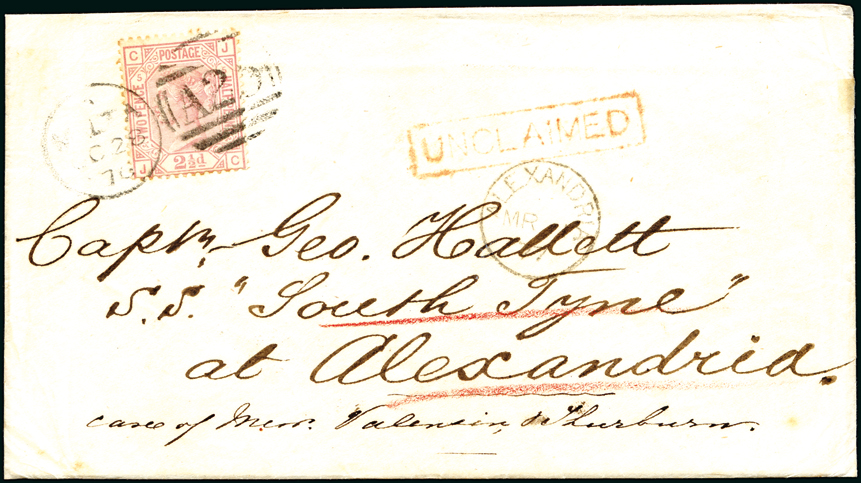 C POSTAGE J
TWO PENCE
J 2½d C
A25
C 28
UNCLAIMED
ALEXANDRIA
MR
Captn. Geo. Hallett
S.S. "South Tyne"
at Alexandria.
care of Messrs. Valensin & Thurburn.